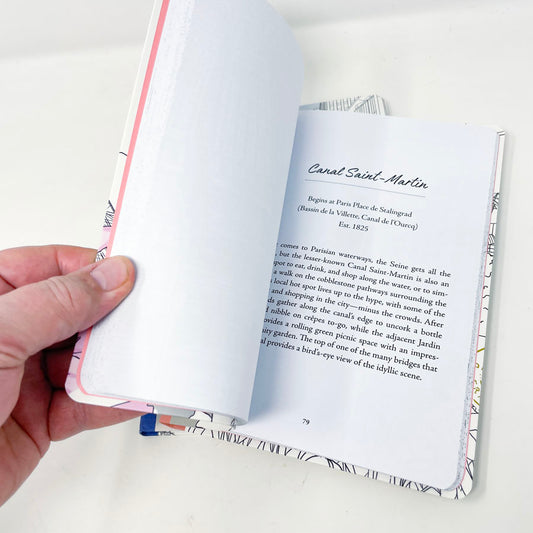 Canal Saint-Martin
Begins at Paris Place de Stalingrad
(Bassin de la Villette, Canal de l'Ourcq)
Est. 1825
comes to Parisian waterways, the Seine gets all the
, but the lesser-known Canal Saint-Martin is also an
spot to eat, drink, and shop along the water, or to sim-
a walk on the cobblestone pathways surrounding the
local hot spot lives up to the hype, with some of the
and shopping in the city—minus the crowds. After
ds gather along the canal's edge to uncork a bottle
nibble on crêpes to-go, while the adjacent Jardin
ovides a rolling green picnic space with an impres-
ury garden. The top of one of the many bridges that
al provides a bird's-eye view of the idyllic scene.
79